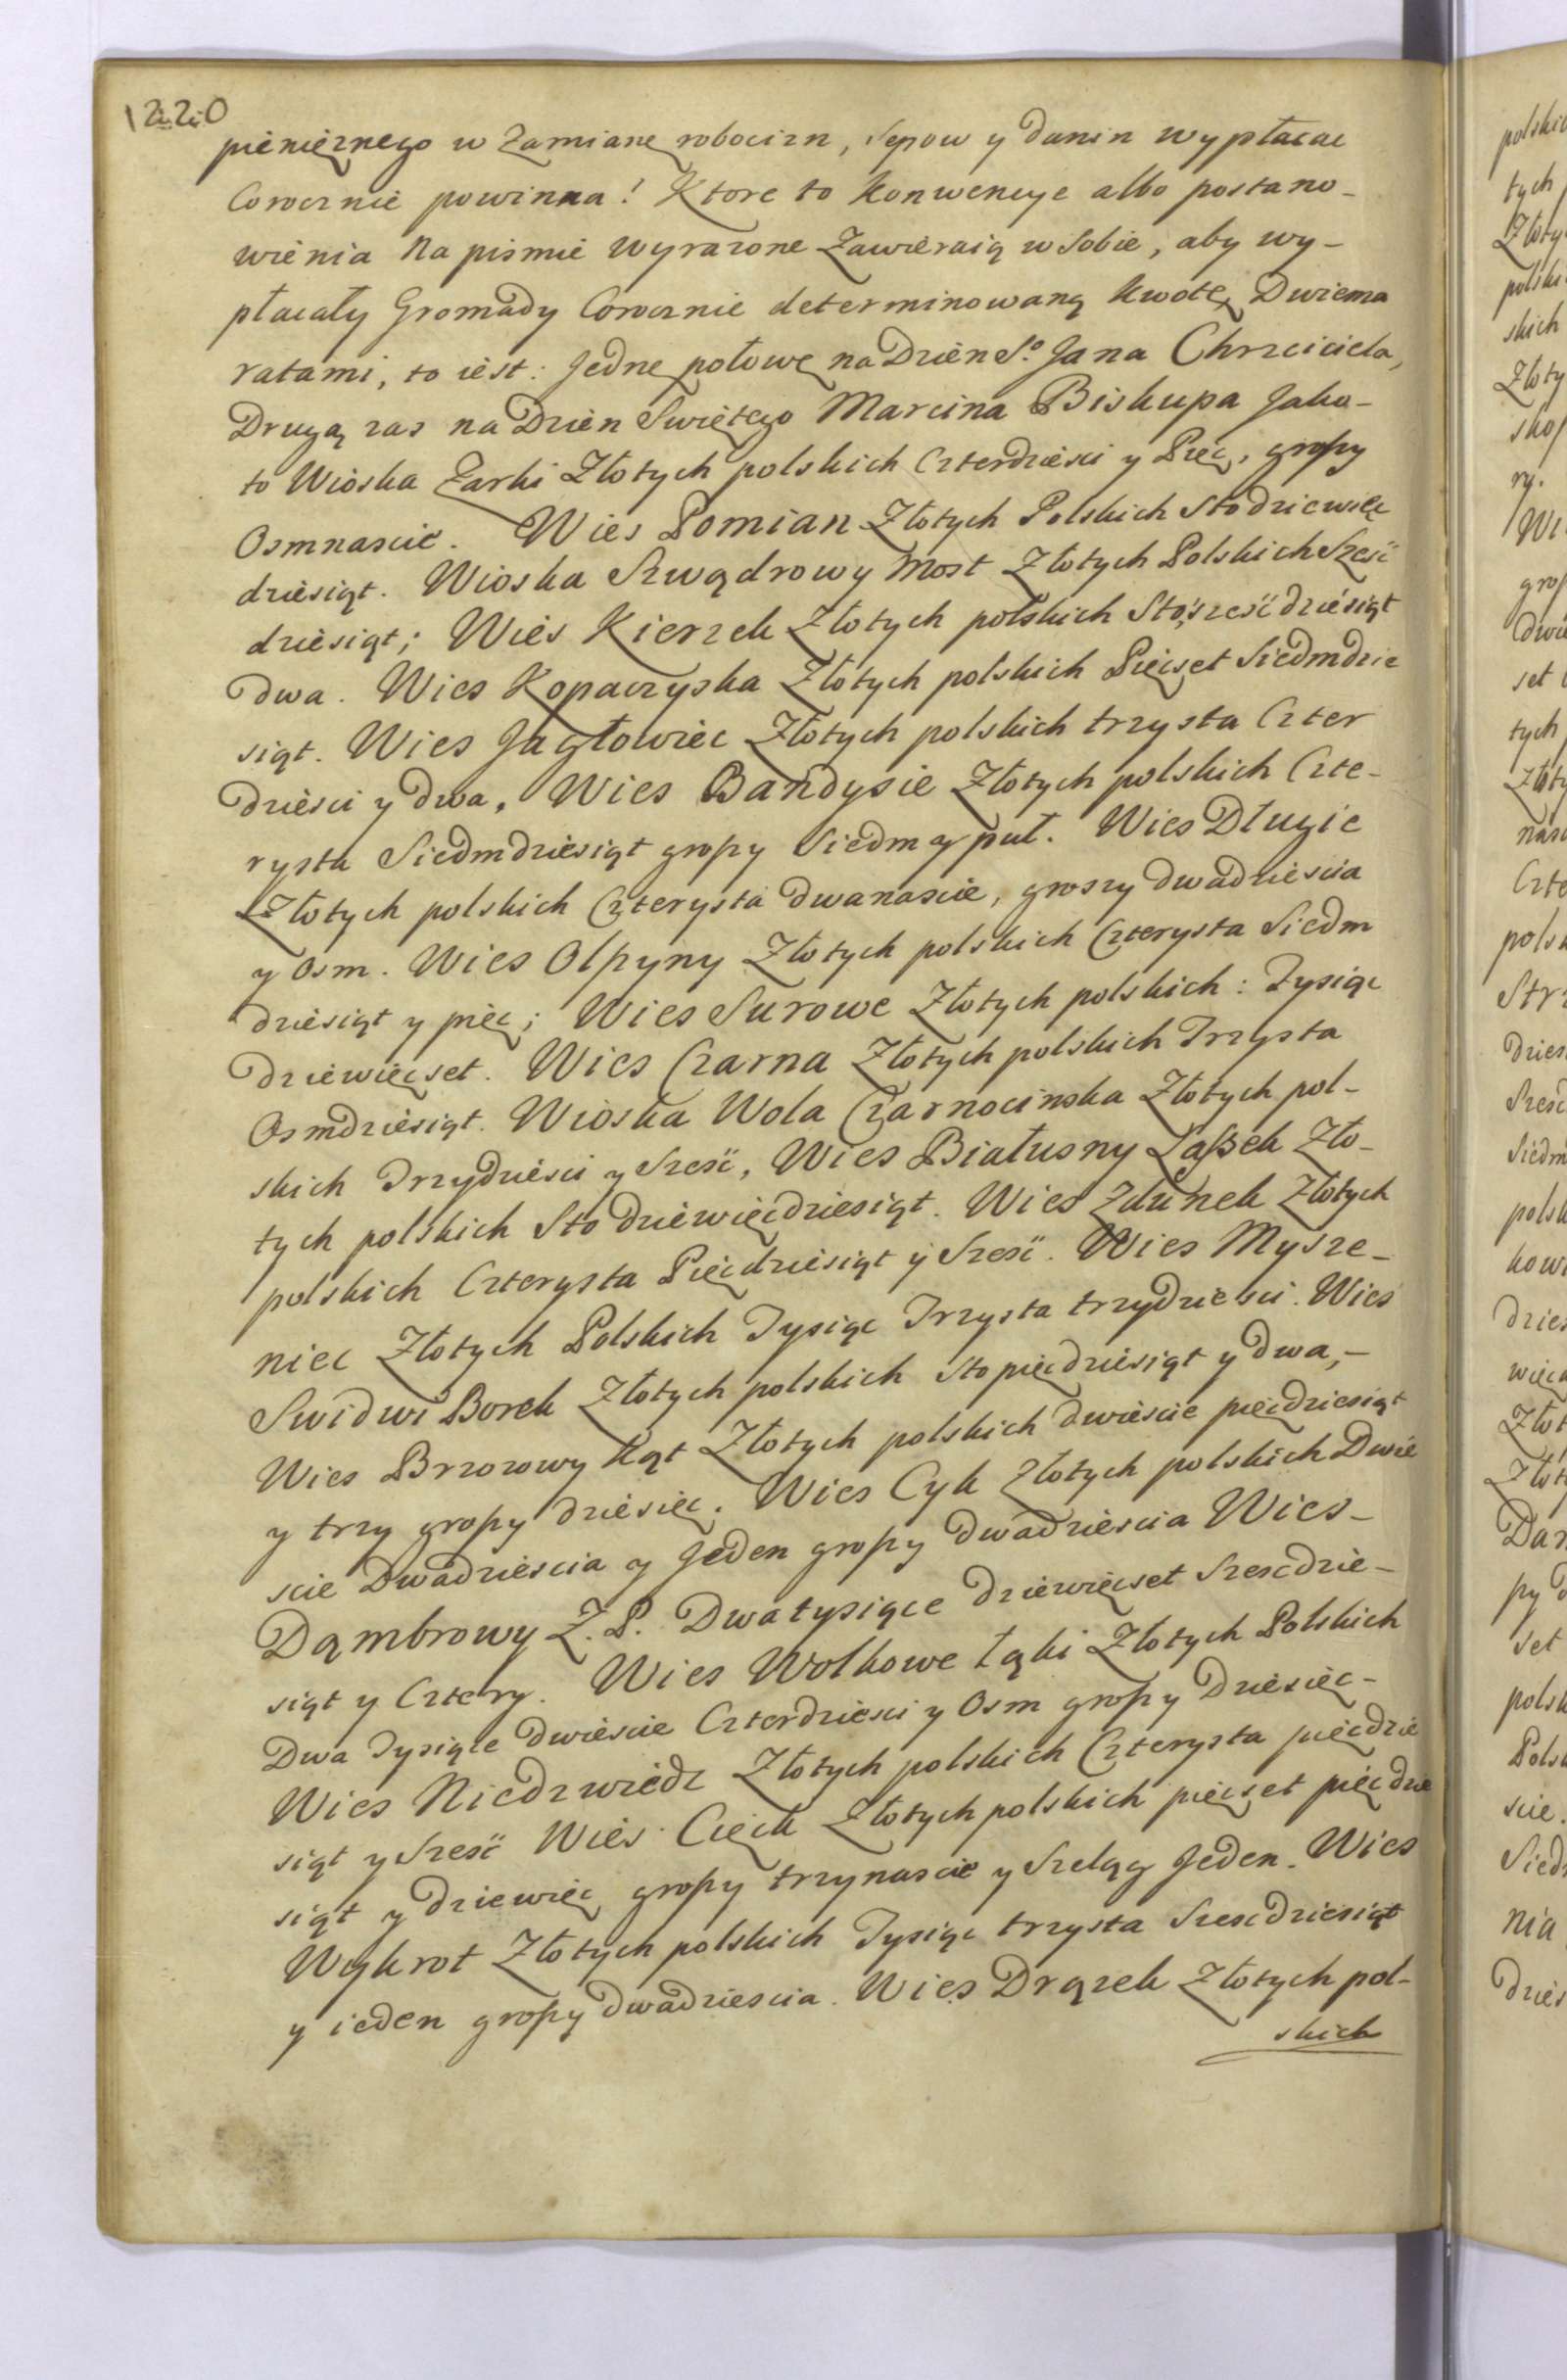 1220
pienięznego w Zamianę robocizn, Sepow y danin wypłacac
Corocznie powinna! Ktore to Konwencye albo postano-
wienia Na pismie wyrazone Zawieraią w Sobie, aby wy-
płacały Gromady Corocznie determinowaną Kwotę Dwiema
ratami, to iest: Jednę połowę na Dzien S.º Jana Chrzciciela,
Drugą zas na Dzien Swiętego Marcina Biskupa Jako-
to Wioska Żarki Złotych polskich Czterdziesci y Pięc, groszy
Osmnascie. Wies Pomian Złotych Polskich Sto dziewięc
dziesiąt. Wioska Szwądrowy Most Złotych Polskich Szesc
dziesiąt; Wies Kierzek Złotych polskich Sto, szesc dziesiąt
Dwa. Wies Kopaczyska Złotych polskich Pięcset Siedmdzie
siąt. Wies Jagłowiec Złotych polskich trzysta Czter
Dziesci y Dwa, Wies Bandysie Złotych polskich Czte-
rysta Siedmdziesiąt groszy Siedm y puł. Wies Długie
Złotych polskich Czterysta Dwanascie, groszy dwadziescia
y Osm. Wies Olszyny Złotych polskich Czterysta Siedm
dziesiąt y pięc; Wies Surowe Złotych polskich: Tysiąc
Dziewięcset. Wies Czarna Złotych polskich Trzysta
Osmdziesiąt. Wioska Wola Czarnocinska Złotych pol-
skich Trzydziesci y Szesc, Wies Białusny Lassek Zło-
tych polskich Sto dziewięcdziesiąt. Wies Zdunek Złotych
polskich Czterysta Pięcdziesiąt y Szesc. Wies Mysze-
niec Złotych Polskich Tysiąc Trzysta trzydziesci. Wies
Swidwi Borek Złotych polskich Sto pięcdziesiąt y Dwa,-
Wies Brzozowy Kąt Złotych polskich dwiescie pięcdziesiąt
y trzy groszy dziesięc. Wies Cyk Złotych polskich Dwie
scie Dwadziescia y Jeden groszy Dwadziescia Wies-
Dąmbrowy Z. P. Dwa tysiące dziewięcset Szescdzie-
siąt y Cztery. Wies Wolkowe Łąki Złotych Polskich
Dwa Tysiące Dwiescie Czterdziesci y Osm groszy Dziesięc-
Wies Niedzwiedz Złotych polskich Czterysta pięcdzie
siąt y Szesc Wies Cięck Złotych polskich pięcset pięcdzie
siąt y Dziewięc groszy trzynascie y Szeląg Jeden. Wies
Wykrot Złotych polskich Tysiąc trzysta Szescdziesiąt
y ieden groszy dwadziescia. Wies Drązek Złotych pol-
skich